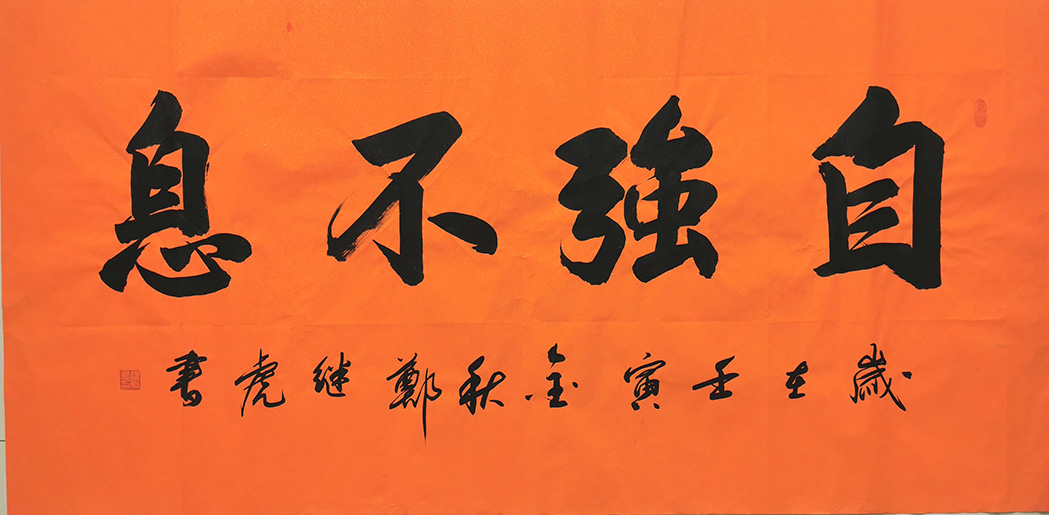 自強不息
歲在壬寅金秋鄭继虎書